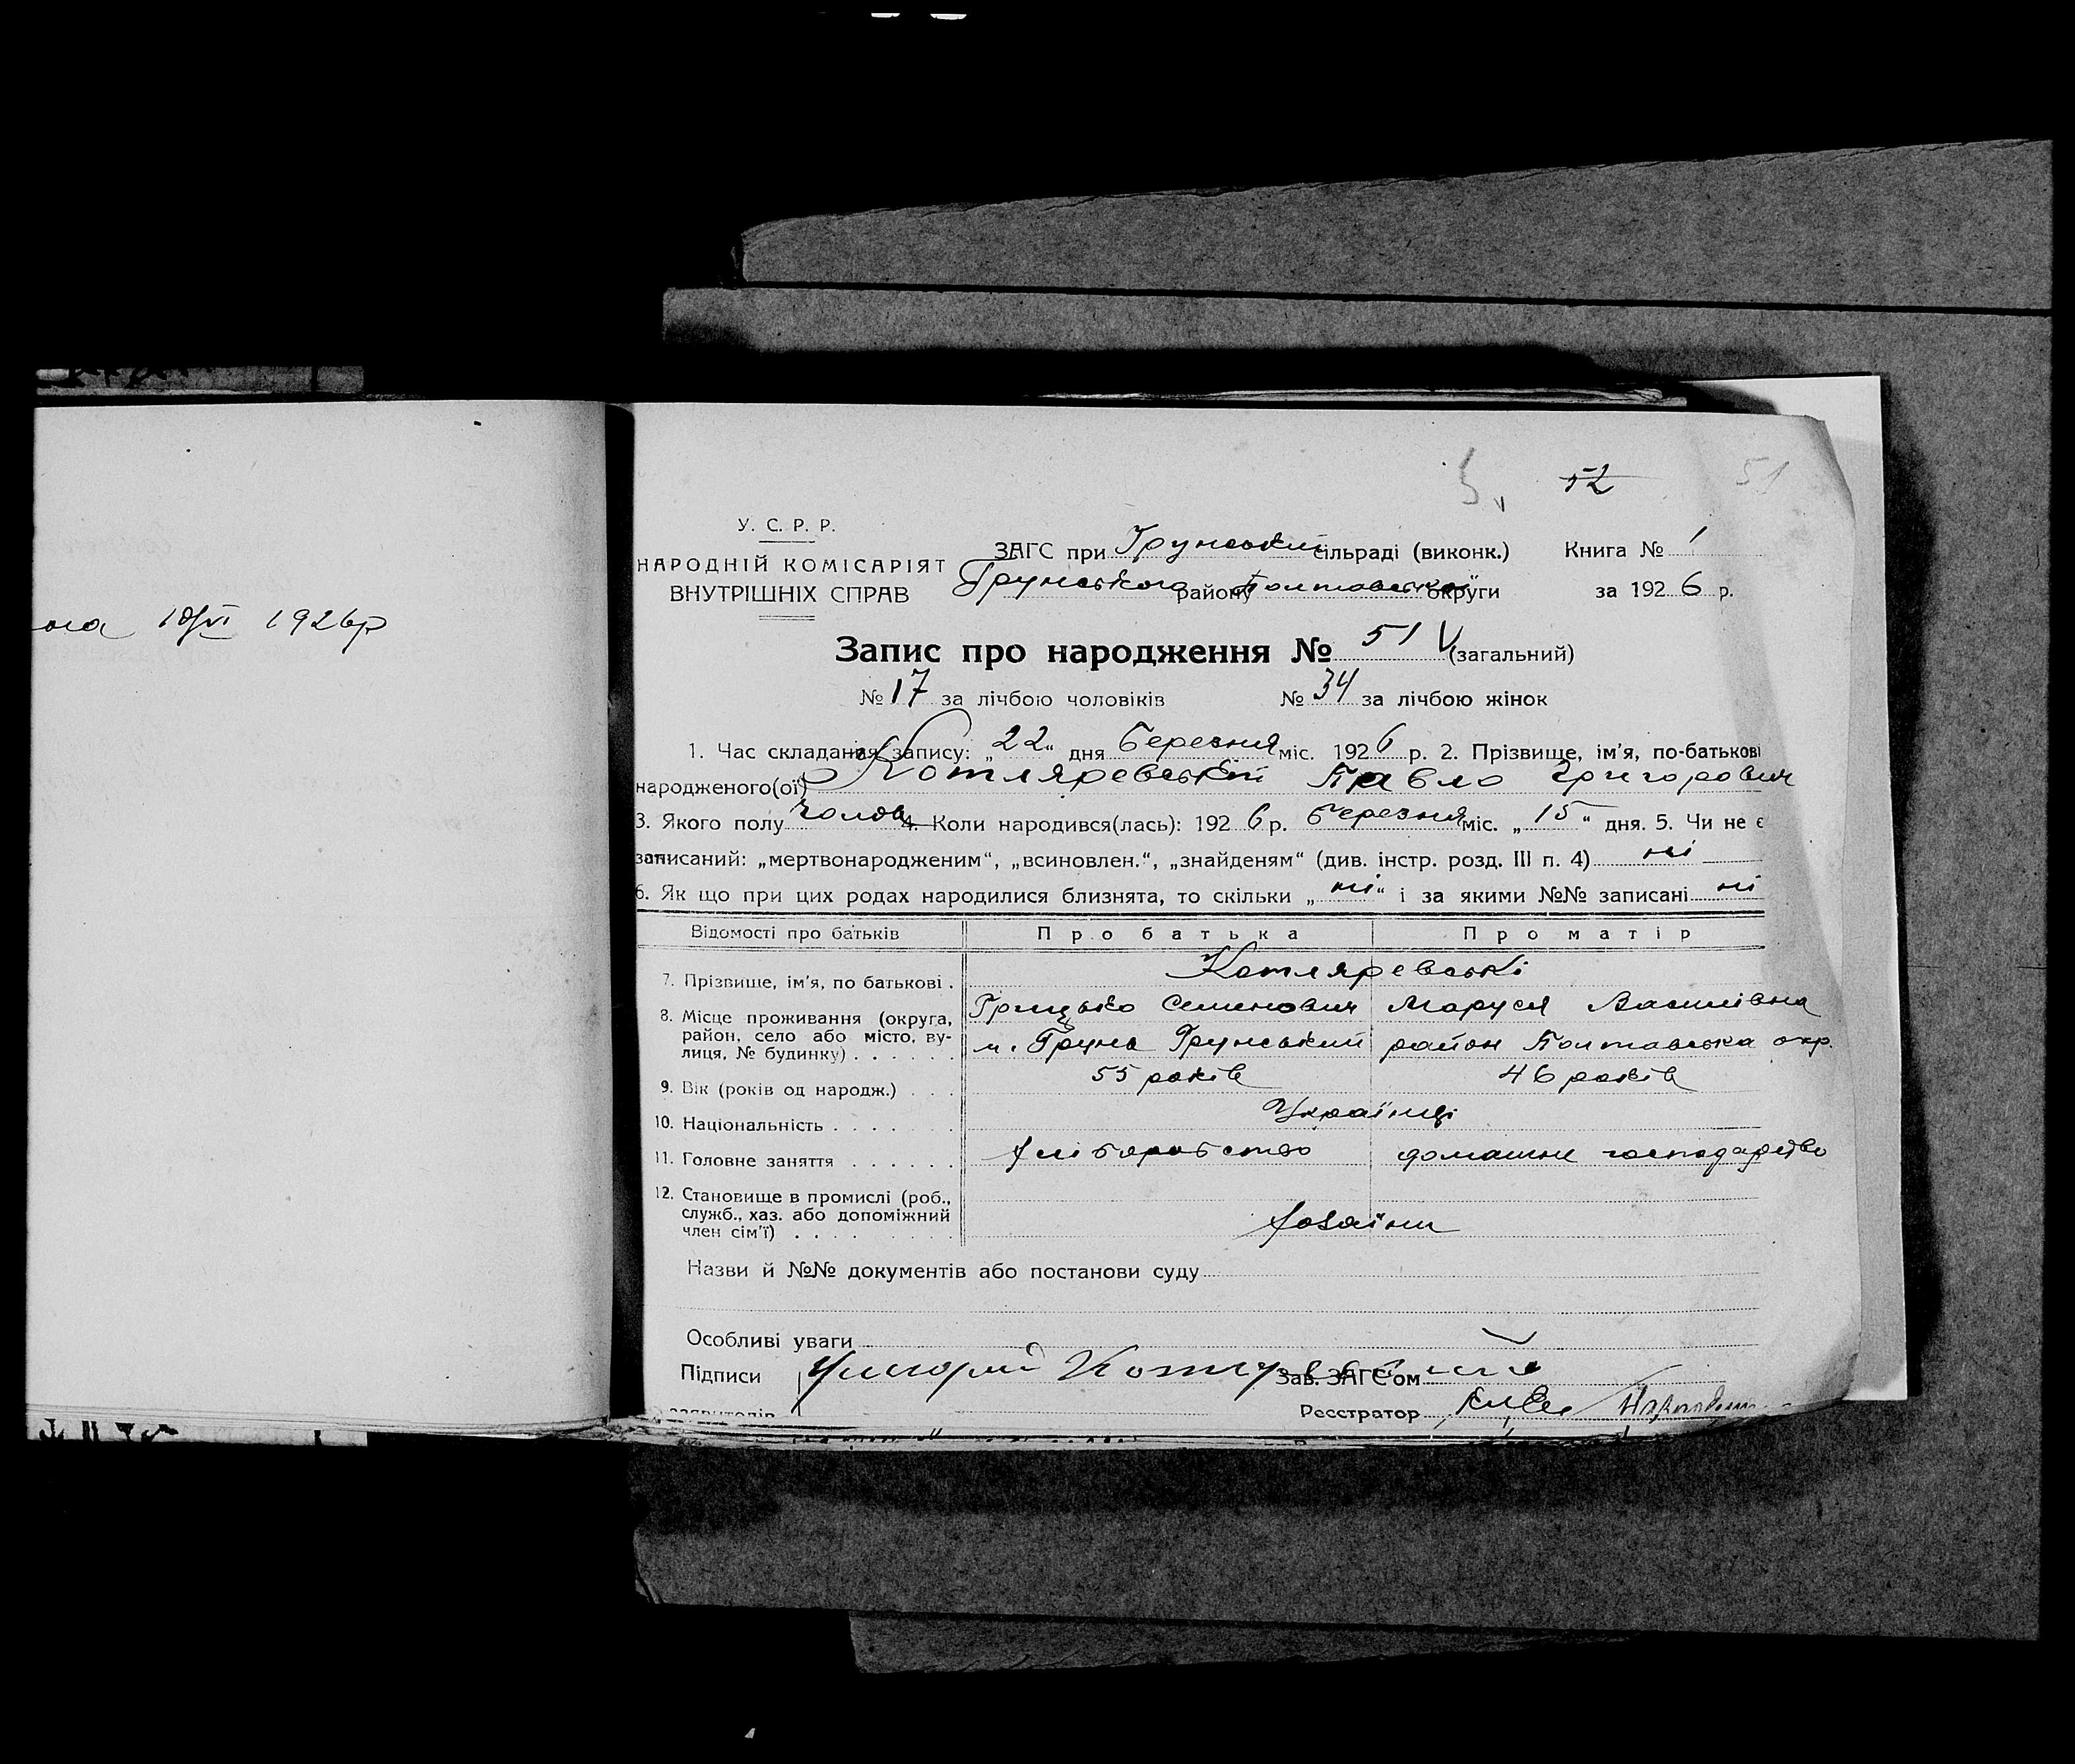 ога 10/VI 1926р
52
51
У. С. Р. Р.
НАРОДНІЙ КОМІСАРІЯТ
ВНУТРІШНІХ СПРАВ
ЗАГС при Грунській сільраді (виконк.)
Грунського району Полтавської округи
Книга № 1
за 1926 р.
Запис про народження № 51 V (загальний)
№ 17 за лічбою чоловіків № 34 за лічбою жінок
1. Час складання запису: „22“ дня Березня міс. 1926 р. 2. Прізвище, ім'я, по-батькові
народженого(ої) Котляревський Павло Григорович
3. Якого полу чолов 4. Коли народився(лась): 1926 р. Березня міс. „15“ дня. 5. Чи не є
записаний: „мертвонародженим“, „всиновлен.“, „знайденям“ (див. інстр. розд. III п. 4) ні
6. Як що при цих родах народилися близнята, то скільки „ні“ і за якими №№ записані ні
Відомості про батьків Про батька Про матір
7. Прізвище, ім'я, по батькові . Котляревські
Грицько Семенович Маруся Василівна
8. Місце проживання (округа,
район, село або місто, ву-
лиця, № будинку) . . . . . . м. Грунь Грунський район Полтавська окр.
9. Вік (років од народж.) . . . 55 років 46 років
10. Національність . . . . . . . Українці
11. Головне заняття . . . . . . хліборобство домашнє господарство
12. Становище в промислі (роб.,
служб., хаз. або допоміжний
член сім'ї) . . . . . . . . хазаїни
Назви й №№ документів або постанови суду
Особливі уваги
Підписи Григорий Зав. ЗАГС'ом
заявителів Реєстратор